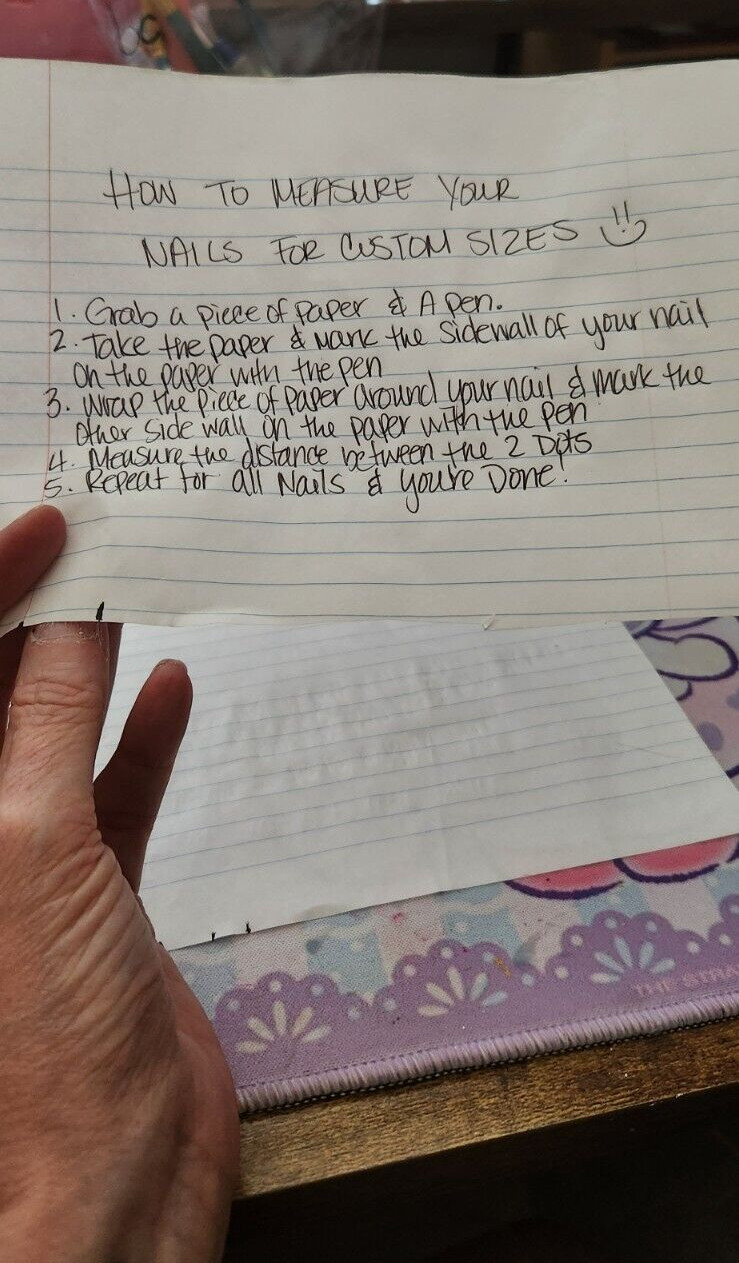 HOW TO MEASURE YOUR
NAILS FOR CUSTOM SIZES
1. Grab a piece of paper & A pen.
2. Take the paper & Mark the Sidewall of your nail
on the paper with the pen
3. Wrap the piece of paper around your nail & mark the
other side wall on the paper with the pen
4. Measure the distance between the 2 Dots
5. Repeat for all Nails & you're Done!
THE STRA